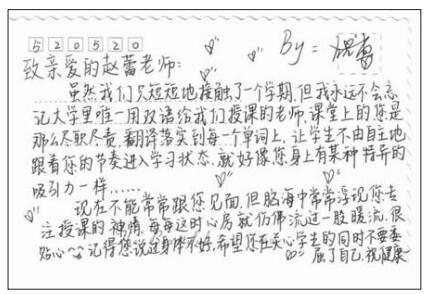 520520
By=
致亲爱的赵蕾老师:
虽然我们只短短地接触了一个学期,但我永远不会忘
记大学里唯一用双语给我们授课的老师,课堂上的您是
那么尽职尽责,翻译落实到每一个单词上,让学生不由自主地
跟着您的节奏进入学习状态,就好像您身上有某种特异的
吸引力一样……
现在不能常常跟您见面,但脑海中常常浮现您专
注授课的神情,每每这时心房就仿佛流过一股暖流,很
贴心~~记得您说过身体不好,希望您在关心学生的同时不要委
屈了自己,祝健康